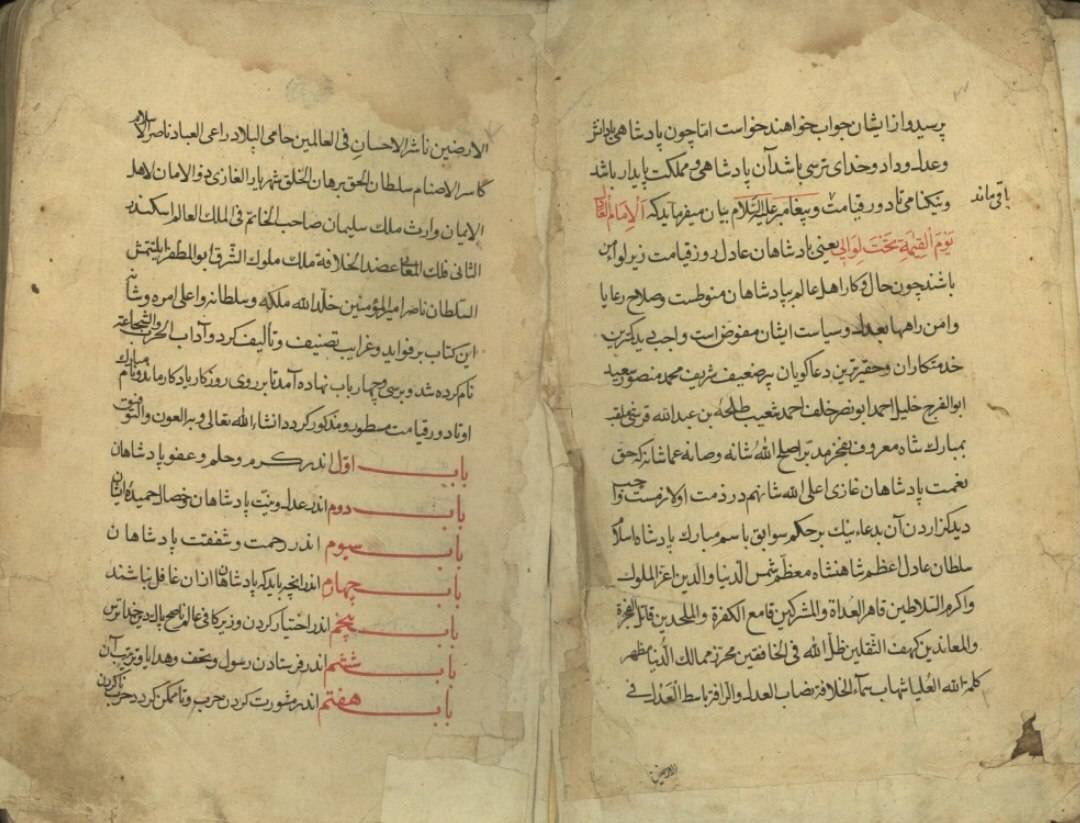 پرسید و از ایشان جواب خواهند خواست اما چون پادشاهی با دانش
و عدل و داد و خدای ترسی باشد آن پادشاهی و مملکت پایدار باشد
باقی ماند
و نیکنامی تا دور قیامت و پیغامبر علیه السلام بیان میفرماید که الامام العادل
یوم القیمة تحت لوایی یعنی پادشاهان عادل روز قیامت زیر لواء من
باشند چون حال و کار اهل عالم بپادشاهان منوطست و صلاح رعایا
و امن راهها بعدل و سیاست ایشان مفوض است واجب دید کمترین
خدمتکاران و حقیرترین دعاگویان پیر ضعیف شریف محمد منصور سعید
ابوالفرج خلیل احمد ابونصر خلف احمد شعیب طلحه بن عبدالله قرشی ملقب
بمبارک شاه معروف بفخر مدبر اصلح الله شانه و صانه عما شانه که حق
نعمت پادشاهان غازی اعلی الله شانهم در ذمت او لازمست واجب
دید گزاردن آن بدعاء نیک بر حکم سوابق باسم مبارک پادشاه اسلام
سلطان عادل اعظم شاهنشاه معظم شمس الدنیا و الدین اعز الملوک
و اکرم السلاطین قاهر العداة و المشرکین قامع الکفرة و الملحدین قاتل الفجرة
و المعاندین کهف الثقلین ظل الله فی الخافقین محرز ممالک الدنیا مظهر
کلمة الله العلیا شهاب سماء الخلافة نصاب العدل و الرافة باسط العدل فی
الارضین
الارضین ناشر الاحسان فی العالمین حامی البلاد راعی العباد ناصر الاسلام
کاسر الاصنام سلطان الحق برهان الخلق شهریار الغازی ذو الامان لاهل
الایمان وارث ملک سلیمان صاحب الخاتم فی الملک العالم اسکندر
الثانی فلک المعالی عضد الخلافة ملک ملوک الشرق ابوالمظفر ایلتتمش
السلطان ناصر امیر المؤمنین خلد الله ملکه و سلطانه و اعلی امره و شانه
این کتاب بر فواید و غرایب تصنیف و تألیف کرد و آداب الحرب و الشجاعة
نام کرده شد و برسی و چهار باب نهاده آمد تا بر روی روزگار یادگار ماند و نام مبارک
او تا دور قیامت مسطور و مذکور گردد انشاء الله تعالی و به العون و التوفیق
باب اول اندر کرم و حلم و عفو پادشاهان
باب دوم اندر عدل و نیت پادشاهان و خصال حمیده ایشان
باب سیوم اندر رحمت و شفقت پادشاهان
باب چهارم اندر آنچه باید که پادشاهان از ان غافل نباشند
باب پنجم اندر اختیار کردن وزیر کافی عالم ناصح پاک دین خداترس
باب ششم اندر فرستادن رسول و تحف و هدایا و ترتیب آن
باب هفتم اندر مشورت کردن حرب و تا ممکن گردد حرب ناکردن